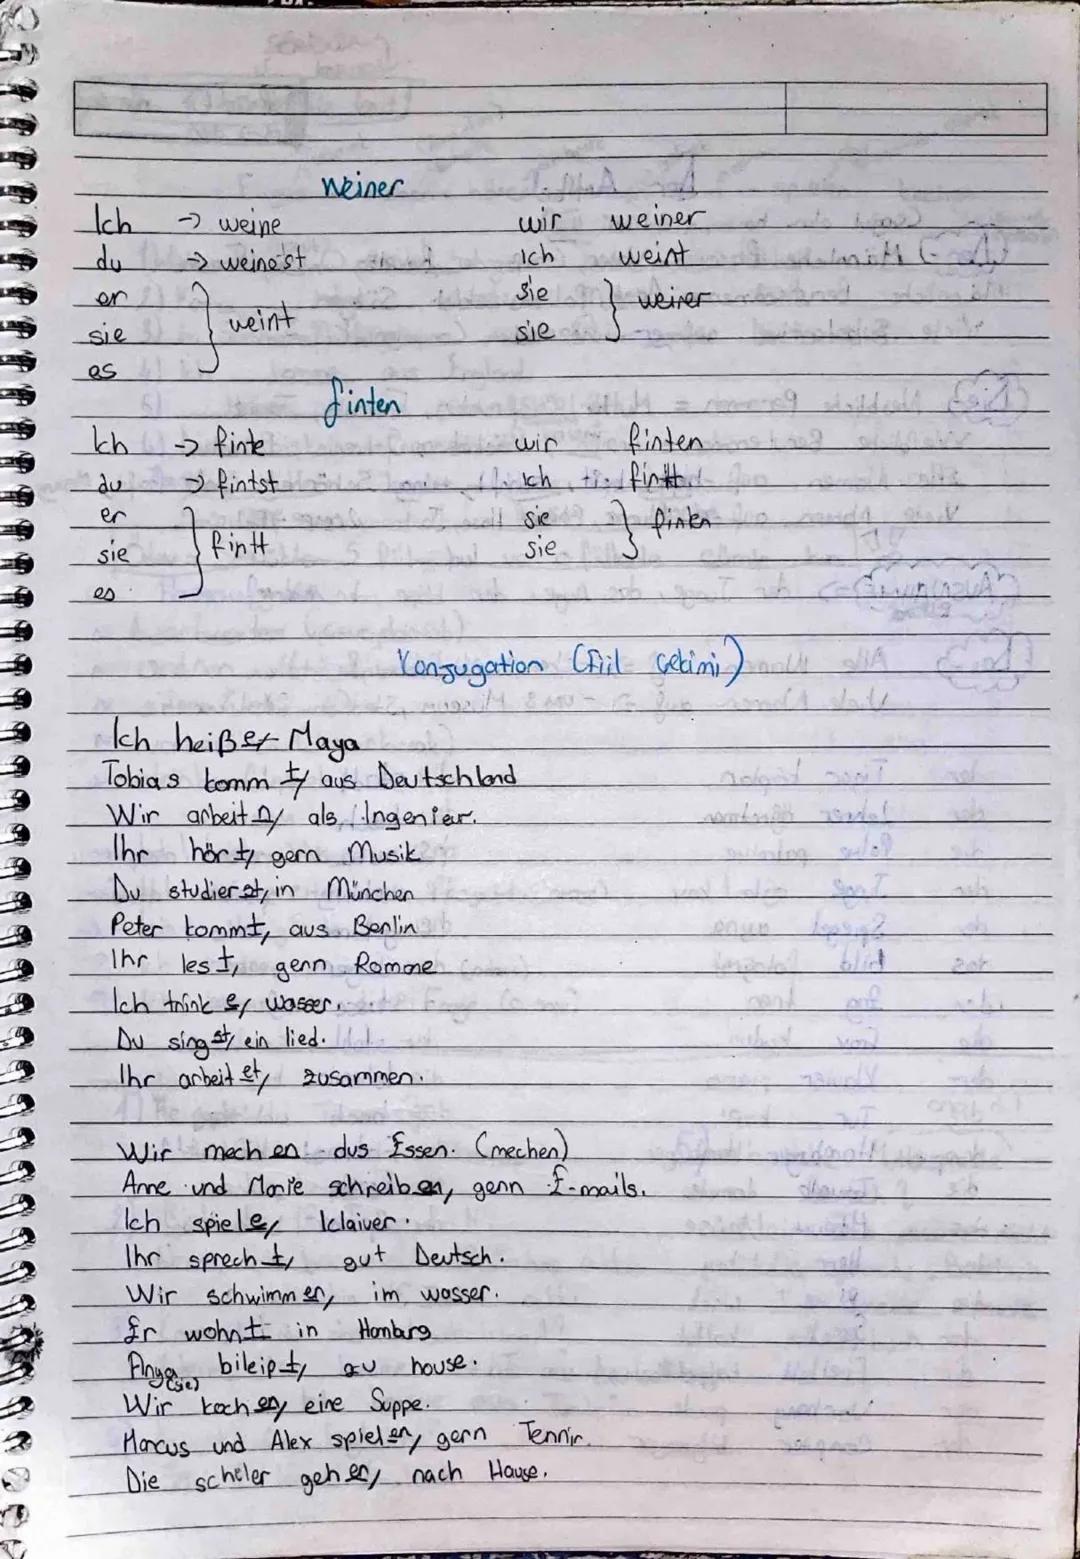 Weiner
Ich → weine wir weiner
du → weinest Ich weint
er sie weiner
sie weint sie
es
finten
Ich → finte wir finten
du → fintst Ich fintt
er sie finten
sie fintt sie
es
Konjugation (Fiil Çekimi)
Ich heiße Maya
Tobias kommt aus Deutschland
Wir arbeitn als Ingenier.
Ihr hört gern Musik
Du studierst in München
Peter kommt, aus Berlin
Ihr lest, gern Romane
Ich trink e, wasser.
Du singst, ein lied.
Ihr arbeitet, zusammen.
Wir mechen dus Essen. (mechen)
Anne und Marie schreiben, gern E-mails.
Ich spiele, Klaiver.
Ihr sprecht, gut Deutsch.
Wir schwimmen, im wasser.
Er wohnt in Hamburg
Anya (sie) bileipt, zu house.
Wir kochen, eine Suppe.
Marcus und Alex spielen, gern Tennir.
Die schüler gehen, nach Hause.